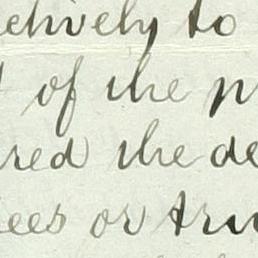 ctively to
of the
red the de
ees or tru